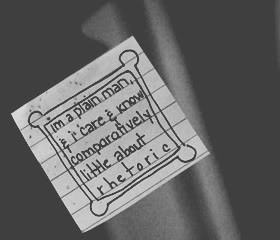 im a plain man,
& i care & know
comparatively
little about
rhetoric